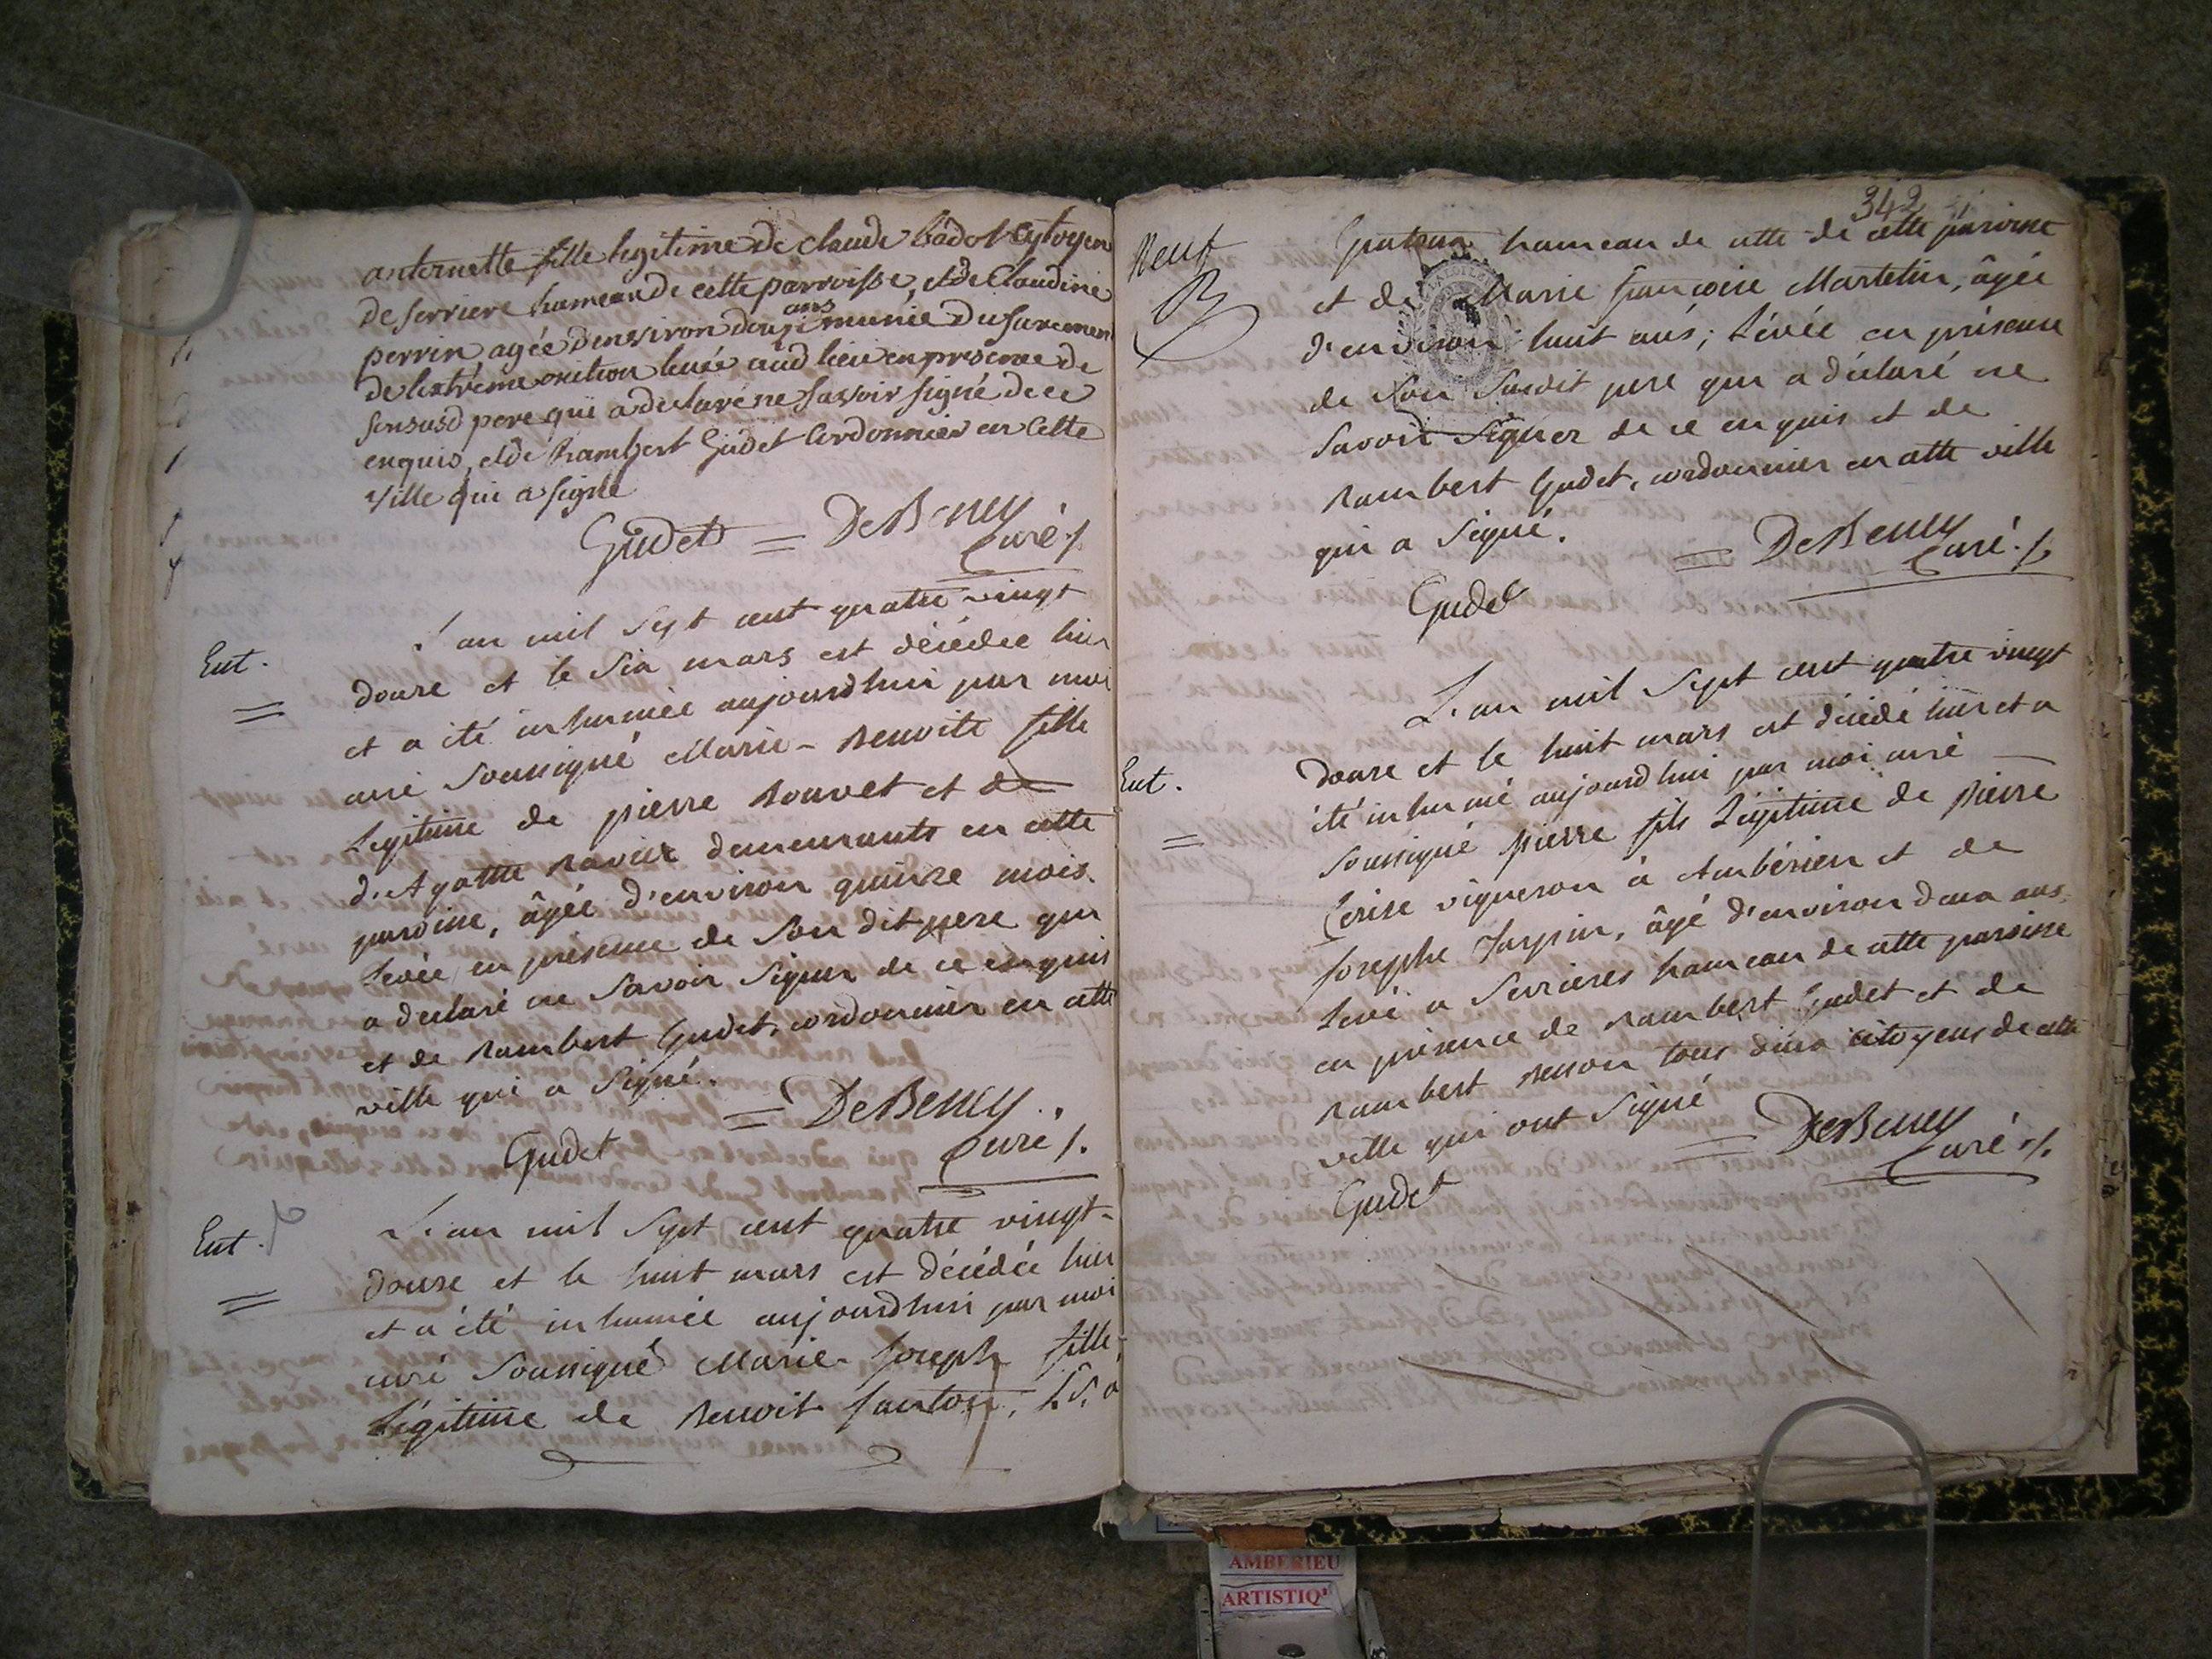 antoinette fille legitime de claude badot Cytoyen
de serriere hameau de cette parroisse, et de Claudine
perrin agée denviron douze ans munie du sacremen
de lextrême onction levée aud lieu en presence de
son susd pere qui a declaré ne savoir signé de ce
enquis, et de Rambert Gudet Cordonnier en Cette
Ville qui a signé
Gudet = DeBeney
Curé
L'an mil sept cent quatre vingt
Ent.
douze et le six mars est décédée hier
et a été inhumée aujourdhui par moi
curé soussigné Marie-Benoite fille
Legitime de pierre Bouvet et de
d'Agathe Ravier demeurants en cette
paroisse, âgée d'environ quinze mois.
Levée en présence de son dit pere qui
a déclaré ne savoir signer de ce enquis
et de Rambert Gudet, cordonnier en cette
ville qui a signé.
= DeBeney.
Gudet
Curé
L'an mil sept cent quatre vingt-
Ent.
douze et le huit mars est décédée hier
et a été inhumée aujourdhui par moi
curé soussigné Marie-Joseph fille
Légitime de Benoit
342
Neuf
hameau de cette de cette paroisse
et de Marie françoise Martelin, âgée
d'environ huit ans; Levée en présence
de son susdit pere qui a déclaré ne
savoir signer de ce enquis et de
Rambert Gudet, cordonnier en cette ville
qui a signé.
= DeBeney
Curé
Gudet
L'an mil sept cent quatre vingt
douze et le huit mars est décédé hier et a
Ent.
été inhumé aujourdhui par moi curé
soussigné pierre fils Légitime de pierre
Cerise vigneron à Ambérieu et de
Josephe Jarpin, âgé d'environ deux ans,
Levé a Serrieres hameau de cette paroisse
en présence de Rambert Gudet et de
Rambert tous deux citoyens de cette
ville qui ont signé
= DeBeney
Curé
Gudet
AMBERIEU
ARTISTIQ'